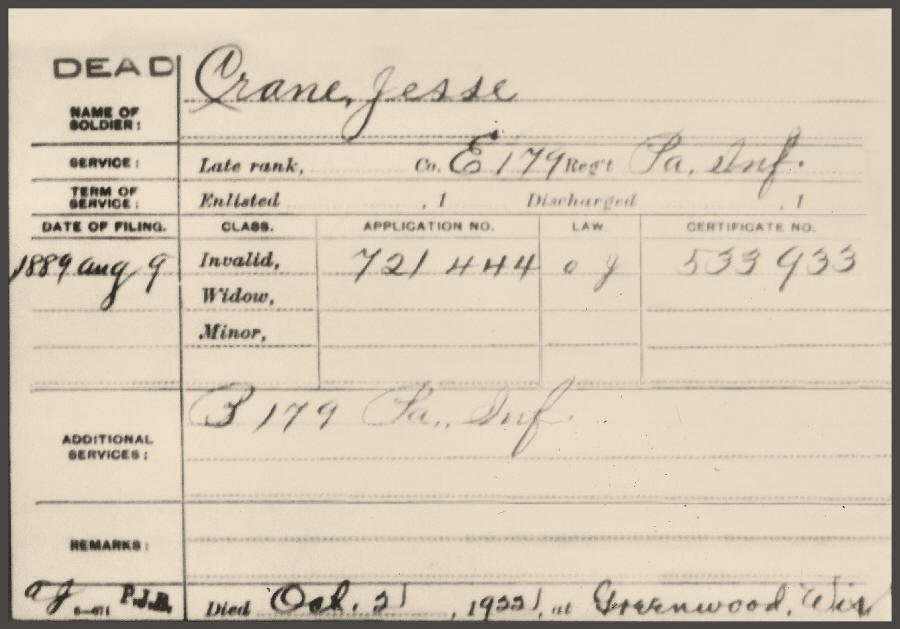 DEAD
NAME OF SOLDIER: Crane, Jesse
SERVICE: Late rank, Co. E 179 Reg't Pa. Inf.
TERM OF SERVICE: Enlisted , 1 Discharged , 1
DATE OF FILING. CLASS. APPLICATION NO. LAW. CERTIFICATE NO.
1889 Aug 9 Invalid, 721 444 533 933
Widow,
Minor,
ADDITIONAL SERVICES: B 179 Pa. Inf.
REMARKS:
P.J.B. Died 21, 19 at Greenwood, Wis